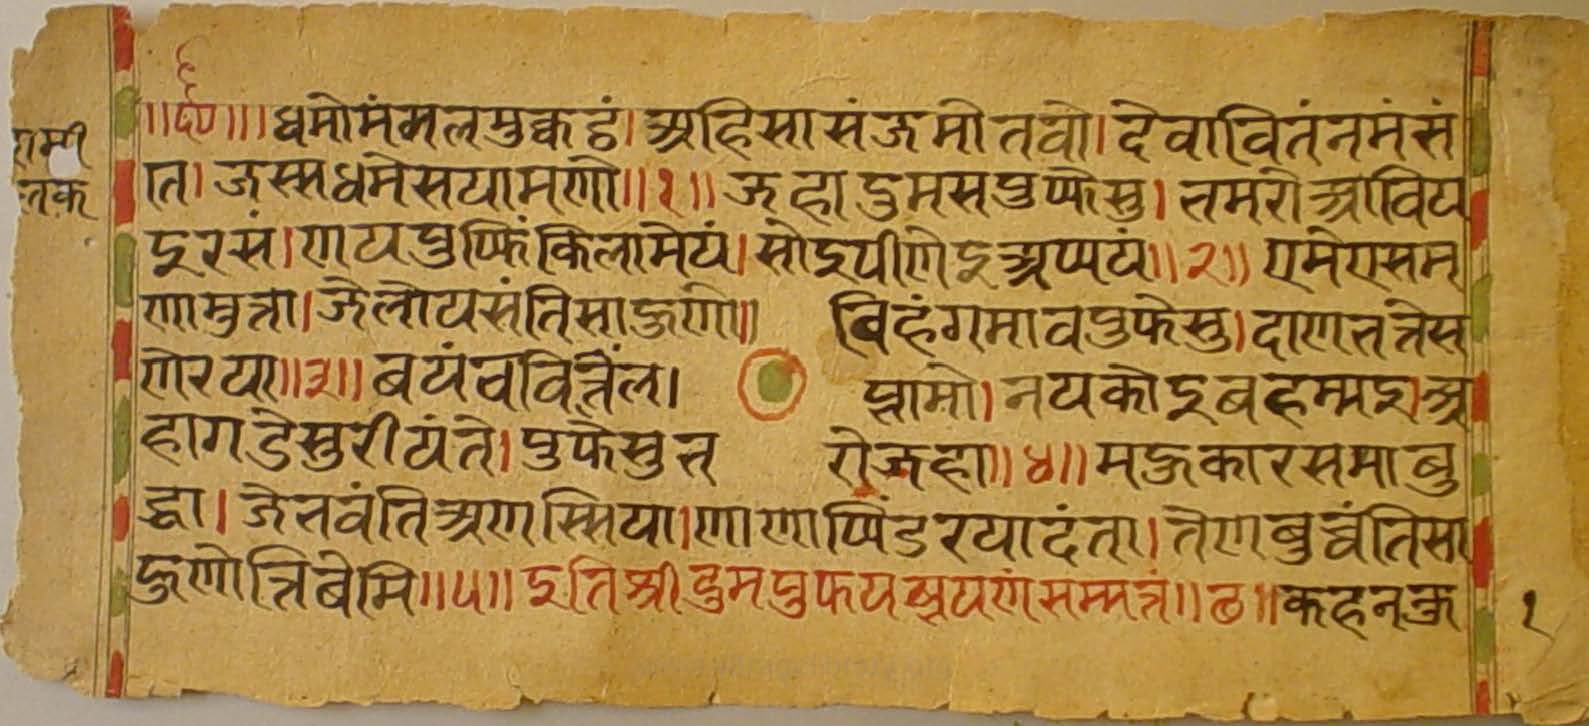 ॥र्द०॥ ।धमोमंगलमुक्कडं।अहिसासंजमोतवो।देवावितंनमंसं
ति।जस्सधमेसयामणो॥१॥जहादुमसपुप्फेसु।भमरोआविय
इरसं।णयपुप्फिंकिलामेयं।सोइपीणेइअप्पयं॥२॥एमेएसम
णामुत्ता।जेलोयसंतिसाहुणो॥ विहंगमावपुफेसु।दाणभत्तेस
णेरया॥३॥वयंचवित्तिंल। प्भामो।नयकोइवहम्मइ।अ
हागडेसुरीयंते।पुफेसुभ रोजहा॥४॥महुकारसमाबु
द्धा।जेभवंतिअणस्सिया।णाणापिंडरयादंता।तेणवुच्चंतिसा
हुणोत्तिबेमि॥५॥इतिश्रीदुमपुफयझयणंसम्मत्तं॥छ॥कहनकु
१